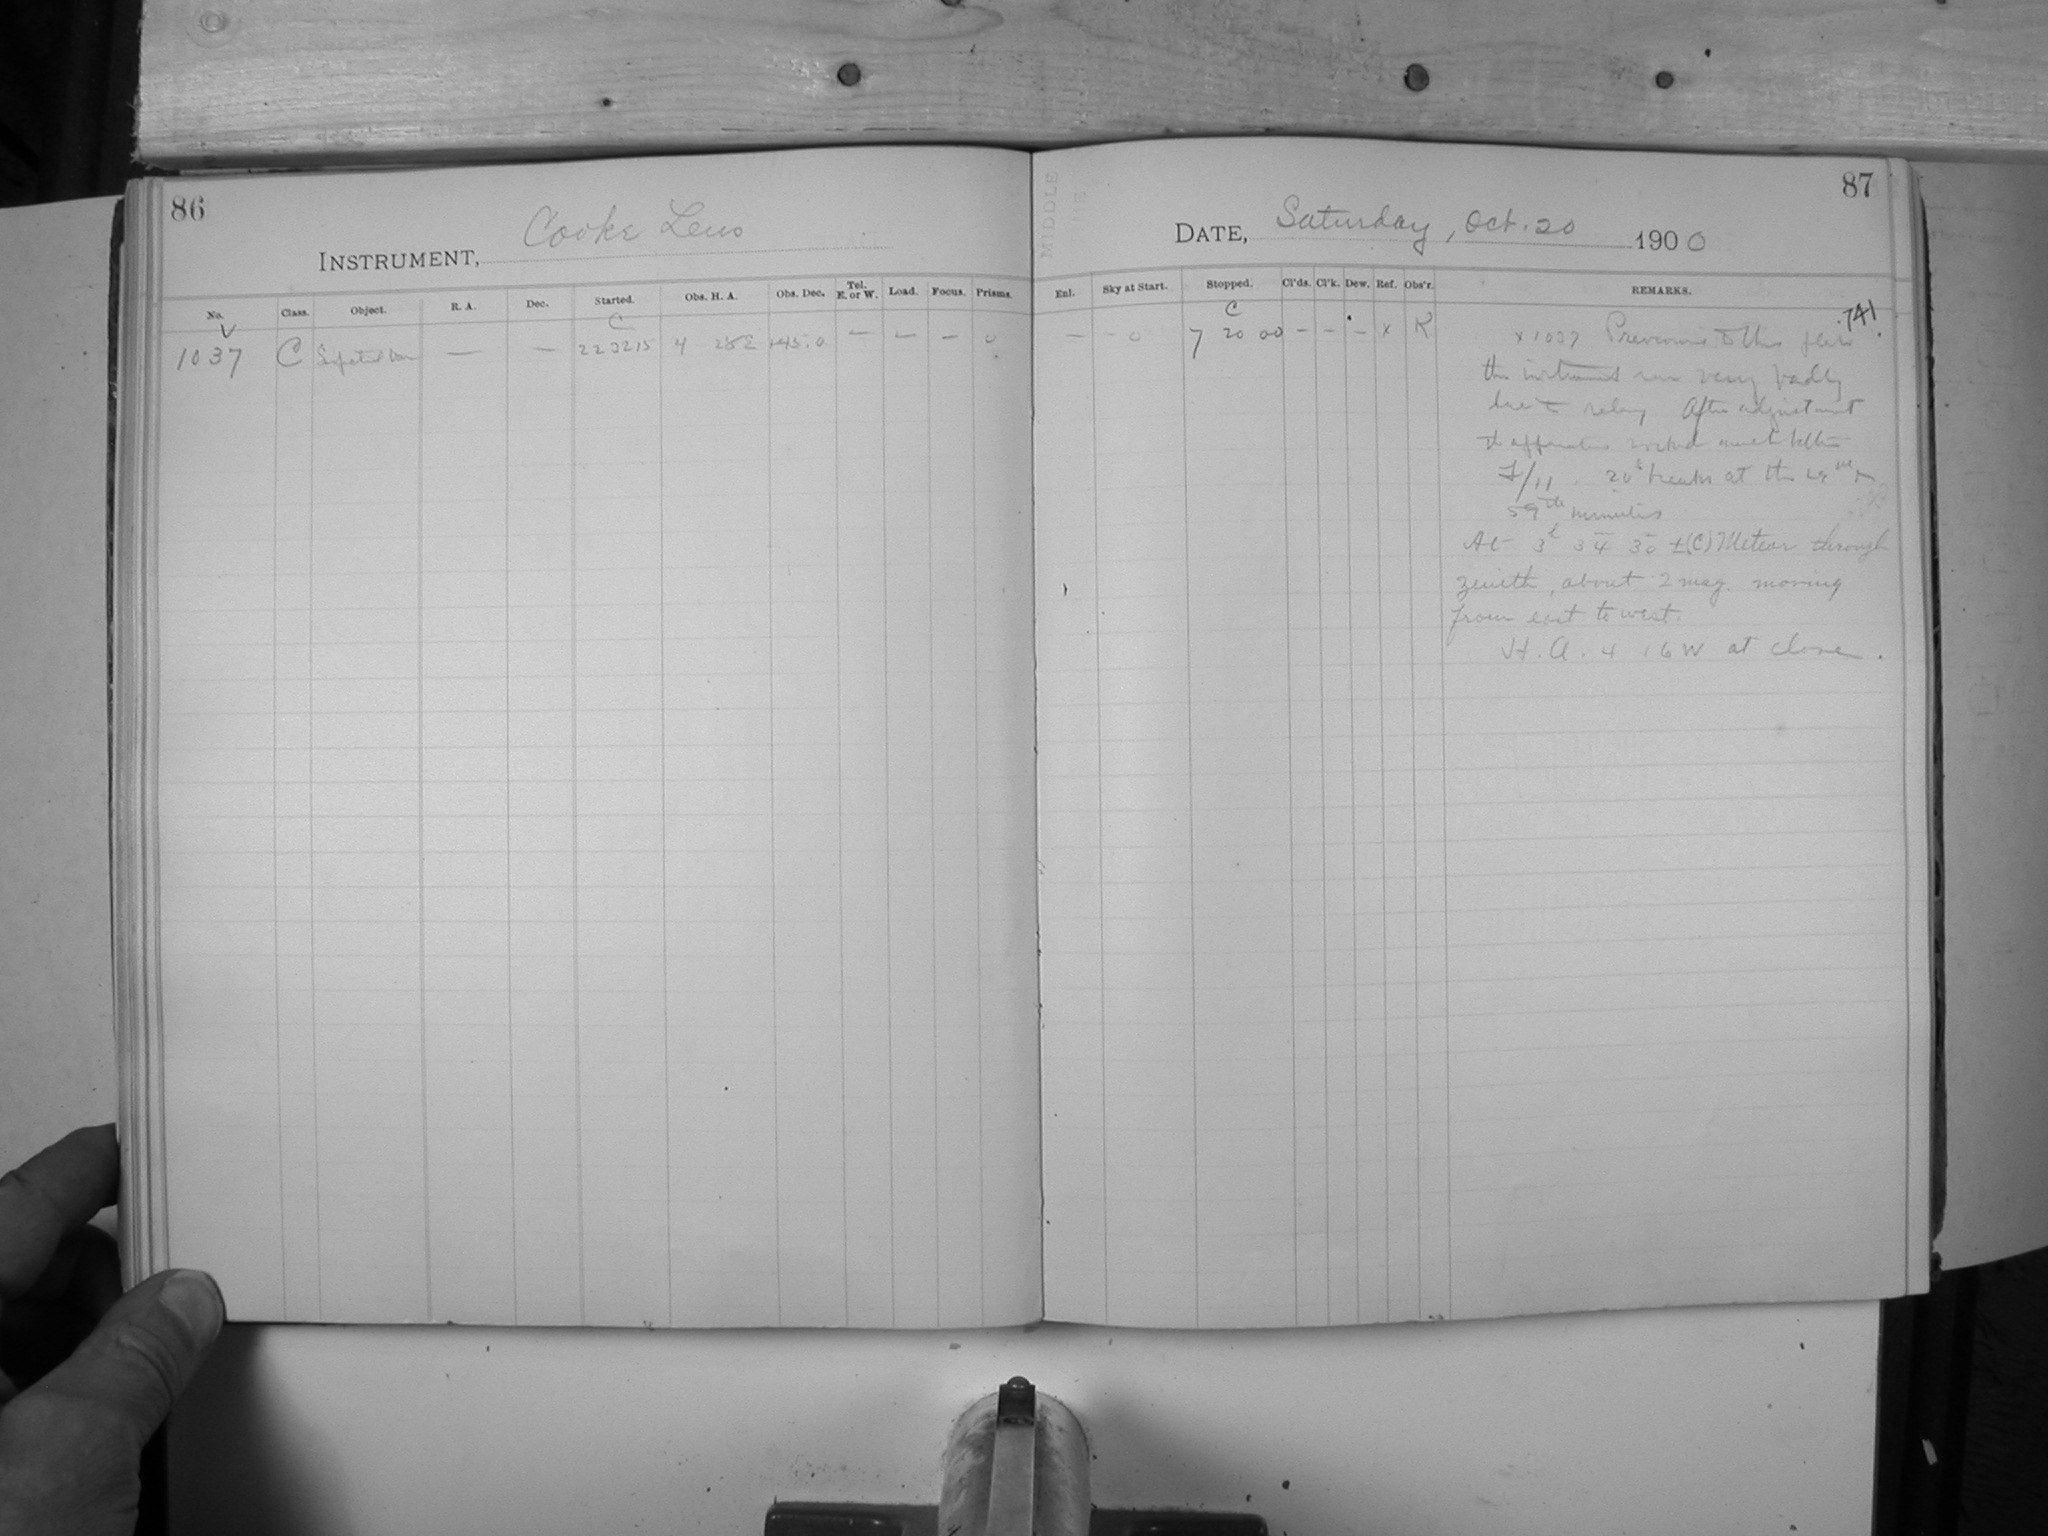 86
INSTRUMENT, Cooke Lens
No. Class. Object. R. A. Dec. Started. Obs. H. A. Obs. Dec. Tel. E. or W. Load. Focus. Prisms.
C
1037 C — — 22 32 15 4 28 E +45.0 — — — 0
87
MIDDLE
DATE, Saturday, Oct. 20 1900
Enl. Sky at Start. Stopped. Cl'ds. Cl'k. Dew. Ref. Obs'r. REMARKS.
741.
C
— 0 7 20 00 — — — x K x 1037 Previous to this plate
the instrument ran very badly
due to relay After adjustment
the apparatus worked much better
F/11. 20s breaks at the &
59th minutes
At 3h 34 30 ±(C) Meteor through
zenith, about 2 mag. moving
from east to west.
H. A. 4 16 W at close.